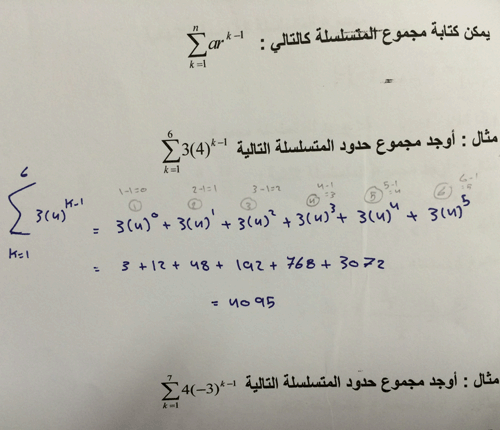 يمكن كتابة مجموع المتسلسلة كالتالي : \sum_{k=1}^{n} ar^{k-1}
مثال : أوجد مجموع حدود المتسلسلة التالية \sum_{k=1}^{6} 3(4)^{k-1}
1-1=0 2-1=1 3-1=2 4-1=3 5-1=4 6-1=5
① ② ③ ④ ⑤ ⑥
\sum_{k=1}^{6} 3(4)^{k-1} = 3(4)^0 + 3(4)^1 + 3(4)^2 + 3(4)^3 + 3(4)^4 + 3(4)^5
= 3 + 12 + 48 + 192 + 768 + 3072
= 4095
مثال : أوجد مجموع حدود المتسلسلة التالية \sum_{k=1}^{7} 4(-3)^{k-1}